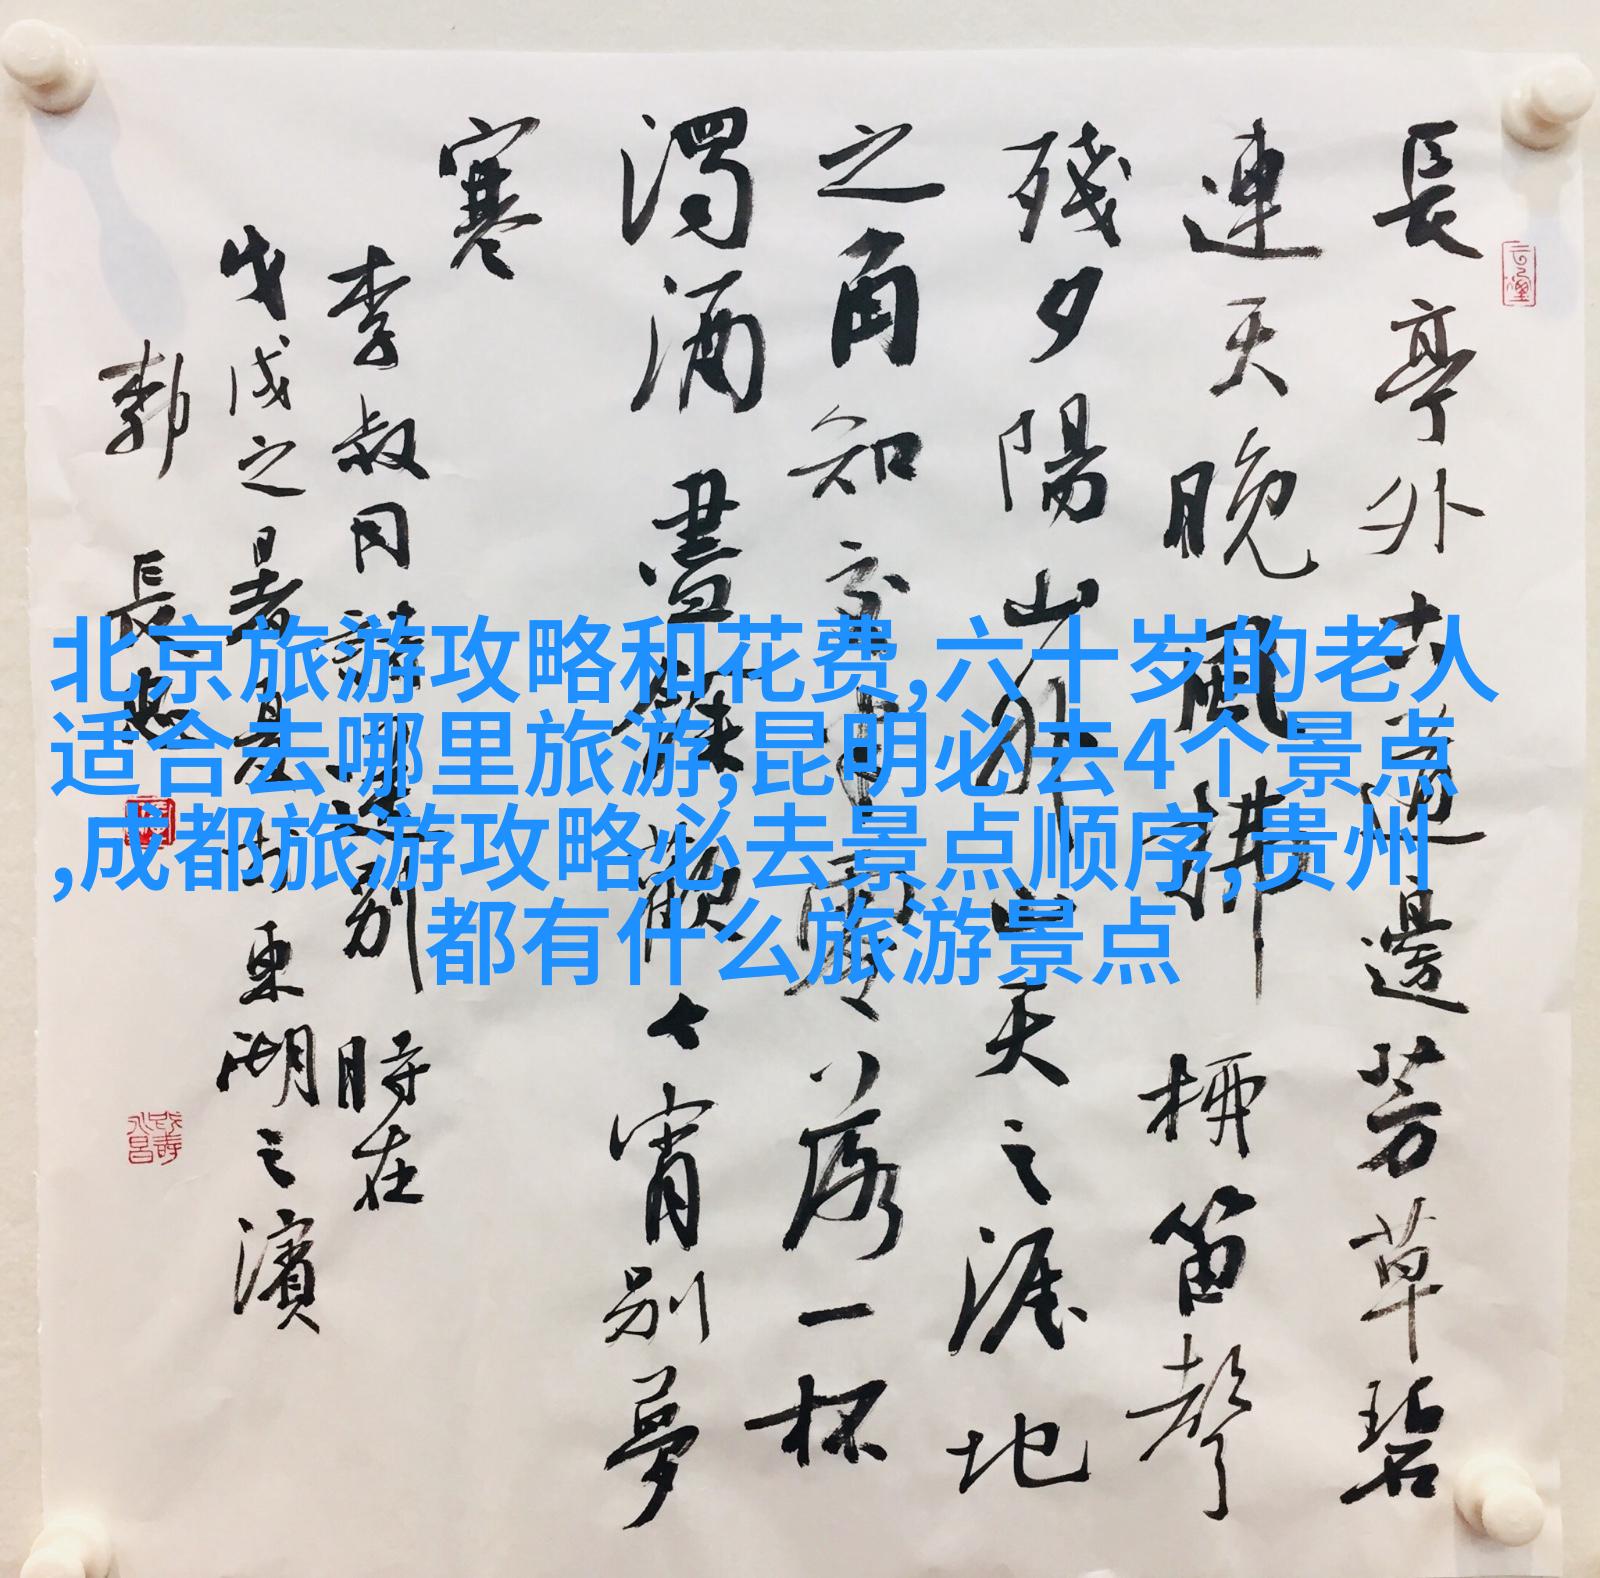 長亭外古道邊芳草碧
連天晚風拂柳笛聲
殘夕陽山外山天之涯地
之角知交半零落一杯
濁酒盡餘歡今宵別夢
寒
李叔同詩送别 時在
戊戌之暑東湖之濱
郭長
北京旅游攻略和花费,六十岁的老人
适合去哪里旅游,昆明必去4个景点
,成都旅游攻略必去景点顺序,贵州
都有什么旅游景点